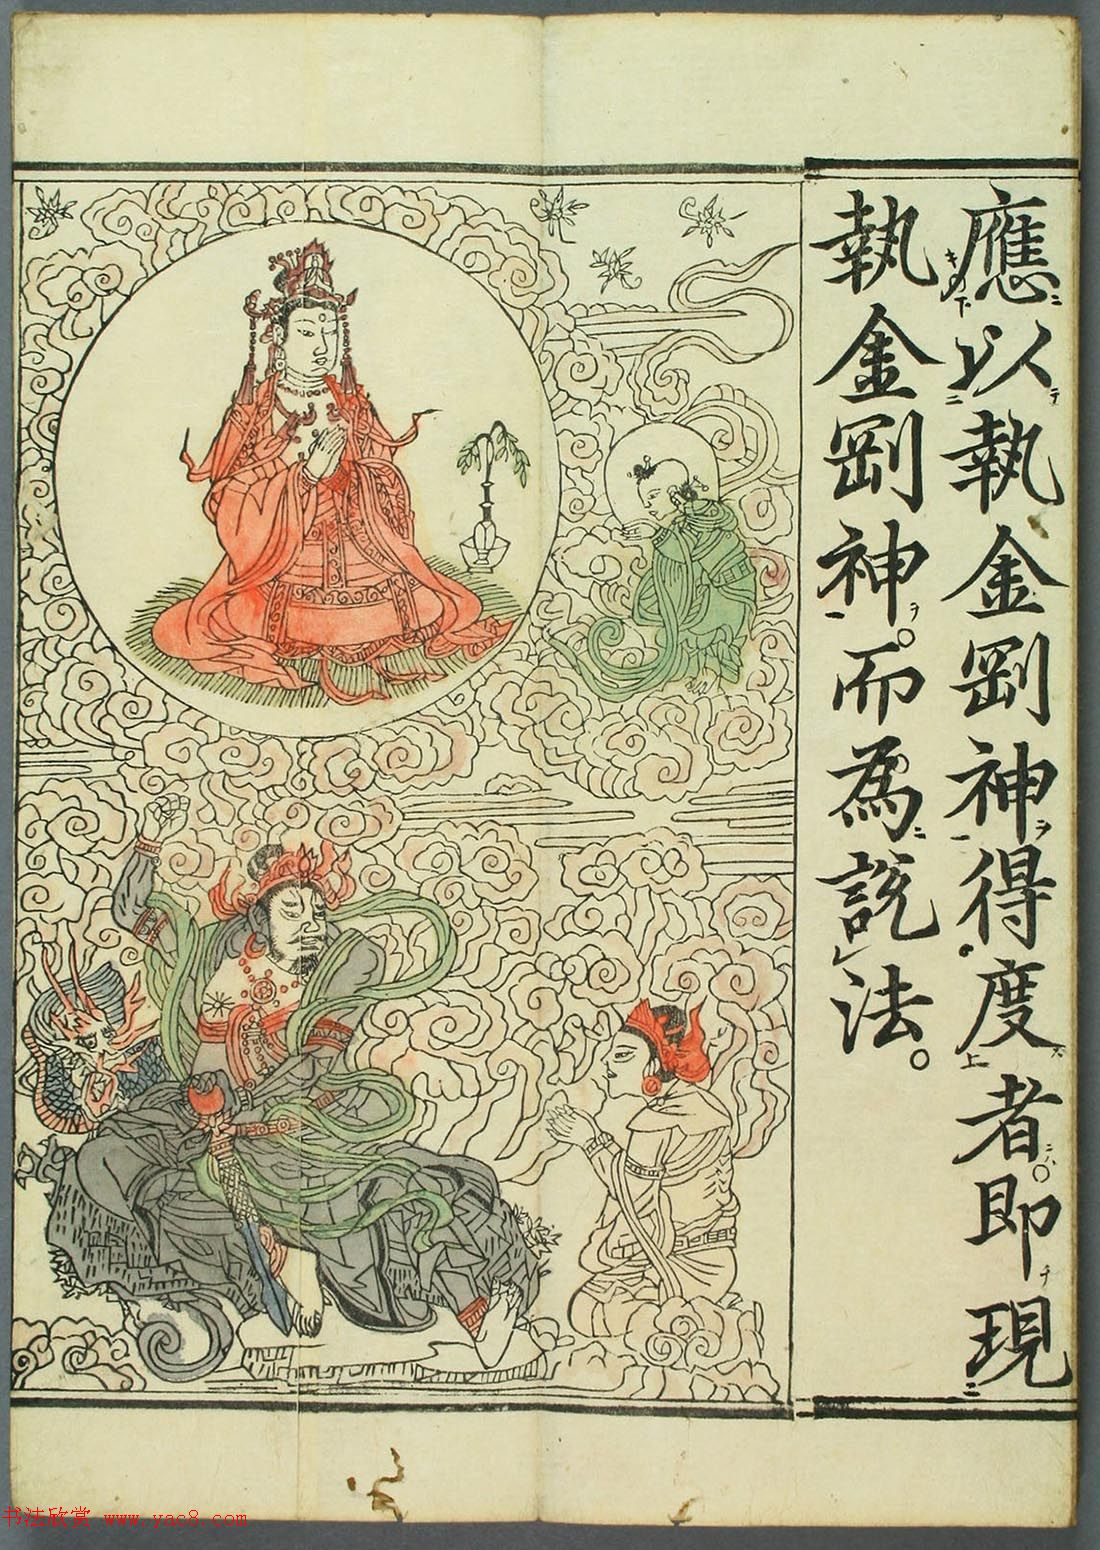 應以執金剛神得度者。即現
執金剛神。而為說法。
书法欣赏 www.yac8.com